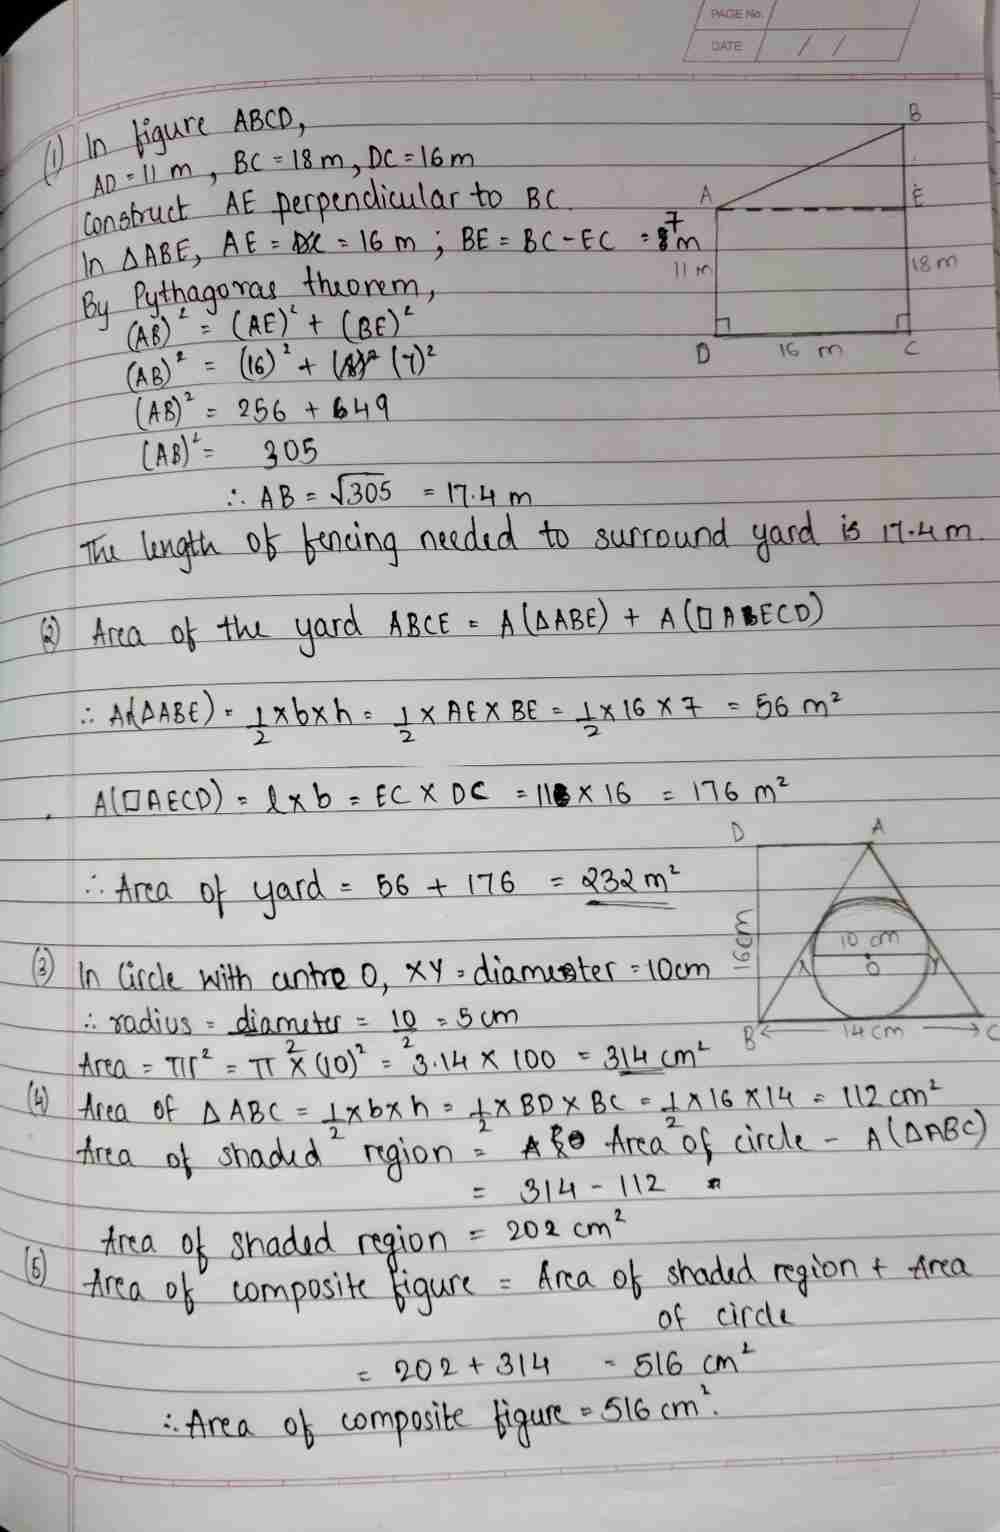 PAGE No.
DATE / /
(1) In figure ABCD,
AD = 11 m, BC = 18 m, DC = 16 m
Construct AE perpendicular to BC.
In △ABE, AE = DC = 16 m ; BE = BC - EC = 7 m
By Pythagoras theorem,
(AB)² = (AE)² + (BE)²
(AB)² = (16)² + (7)²
(AB)² = 256 + 49
(AB)² = 305
∴ AB = √305 = 17.4 m
The length of fencing needed to surround yard is 17.4 m.
B
A
E
11 m
18 m
D
16 m
C
(2) Area of the yard ABCE = A(△ABE) + A(□AECD)
∴ A(△ABE) = 1/2 × b × h = 1/2 × AE × BE = 1/2 × 16 × 7 = 56 m²
A(□AECD) = l × b = EC × DC = 11 × 16 = 176 m²
∴ Area of yard = 56 + 176 = 232 m²
D
A
16 cm
10 cm
O
X
Y
B
14 cm
C
(3) In Circle with centre O, XY = diameter = 10cm
∴ radius = diameter/2 = 10/2 = 5 cm
Area = πr² = π × (10)² = 3.14 × 100 = 314 cm²
(4) Area of △ABC = 1/2 × b × h = 1/2 × BD × BC = 1/2 × 16 × 14 = 112 cm²
Area of shaded region = Area of circle - A(△ABC)
= 314 - 112
Area of shaded region = 202 cm²
(5) Area of composite figure = Area of shaded region + Area
of circle
= 202 + 314 = 516 cm²
∴ Area of composite figure = 516 cm².